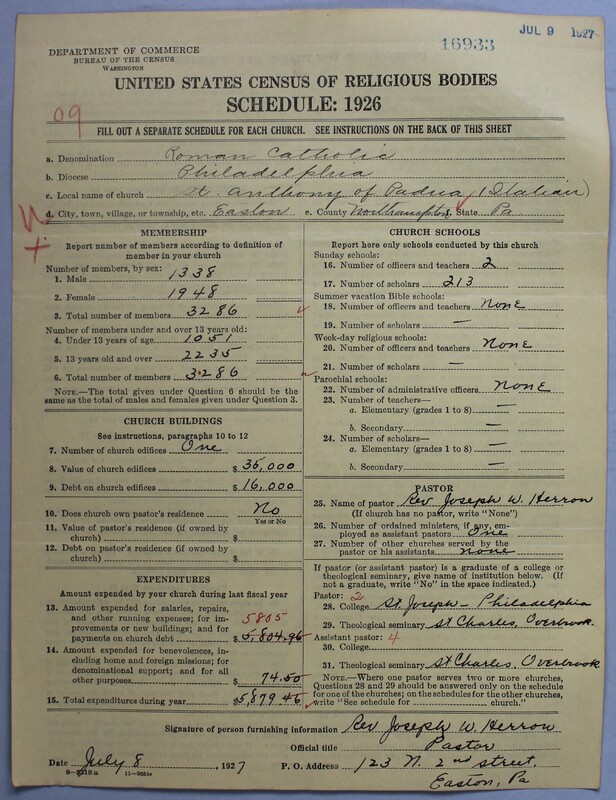 JUL 9 1927
16933
DEPARTMENT OF COMMERCE
BUREAU OF THE CENSUS
WASHINGTON
UNITED STATES CENSUS OF RELIGIOUS BODIES
SCHEDULE: 1926
09
FILL OUT A SEPARATE SCHEDULE FOR EACH CHURCH. SEE INSTRUCTIONS ON THE BACK OF THIS SHEET
a. Denomination Roman Catholic
b. Diocese Philadelphia
c. Local name of church St. Anthony of Padua (Italian)
d. City, town, village, or township, etc. Easton e. County Northampton f. State Pa
MEMBERSHIP
Report number of members according to definition of
member in your church
Number of members, by sex:
1. Male 1338
2. Female 1948
3. Total number of members 3286
Number of members under and over 13 years old:
4. Under 13 years of age 1051
5. 13 years old and over 2235
6. Total number of members 3286
NOTE.—The total given under Question 6 should be the
same as the total of males and females given under Question 3.
CHURCH BUILDINGS
See instructions, paragraphs 10 to 12
7. Number of church edifices One
8. Value of church edifices $ 35,000
9. Debt on church edifices $ 16,000
10. Does church own pastor's residence No
Yes or No
11. Value of pastor's residence (if owned by
church) $
12. Debt on pastor's residence (if owned by
church) $
EXPENDITURES
Amount expended by your church during last fiscal year
13. Amount expended for salaries, repairs,
and other running expenses; for im-
provements or new buildings; and for
payments on church debt 5805 $5,804.96
14. Amount expended for benevolences, in-
cluding home and foreign missions; for
denominational support; and for all
other purposes $ 74.50
15. Total expenditures during year $5,879.46
CHURCH SCHOOLS
Report here only schools conducted by this church
Sunday schools:
16. Number of officers and teachers 2
17. Number of scholars 213
Summer vacation Bible schools:
18. Number of officers and teachers None
19. Number of scholars —
Week-day religious schools:
20. Number of officers and teachers None
21. Number of scholars —
Parochial schools:
22. Number of administrative officers None
23. Number of teachers—
a. Elementary (grades 1 to 8) —
b. Secondary —
24. Number of scholars—
a. Elementary (grades 1 to 8) —
b. Secondary —
PASTOR
25. Name of pastor Rev Joseph W. Herron
(If church has no pastor, write "None")
26. Number of ordained ministers, if any, em-
ployed as assistant pastors One
27. Number of other churches served by the
pastor or his assistants none
If pastor (or assistant pastor) is a graduate of a college or
theological seminary, give name of institution below. (If
not a graduate, write "No" in the space indicated.)
Pastor: 2
28. College St Joseph - Philadelphia
29. Theological seminary St Charles, Overbrook
Assistant pastor: 4
30. College
31. Theological seminary St Charles. Overbrook
NOTE.—Where one pastor serves two or more churches,
Questions 28 and 29 should be answered only on the schedule
for one of the churches; on the schedules for the other churches,
write "See schedule for church."
Signature of person furnishing information Rev Joseph W. Herron
Official title Pastor
Date July 8, 1927 P. O. Address 123 N. 2nd street.
Easton, Pa